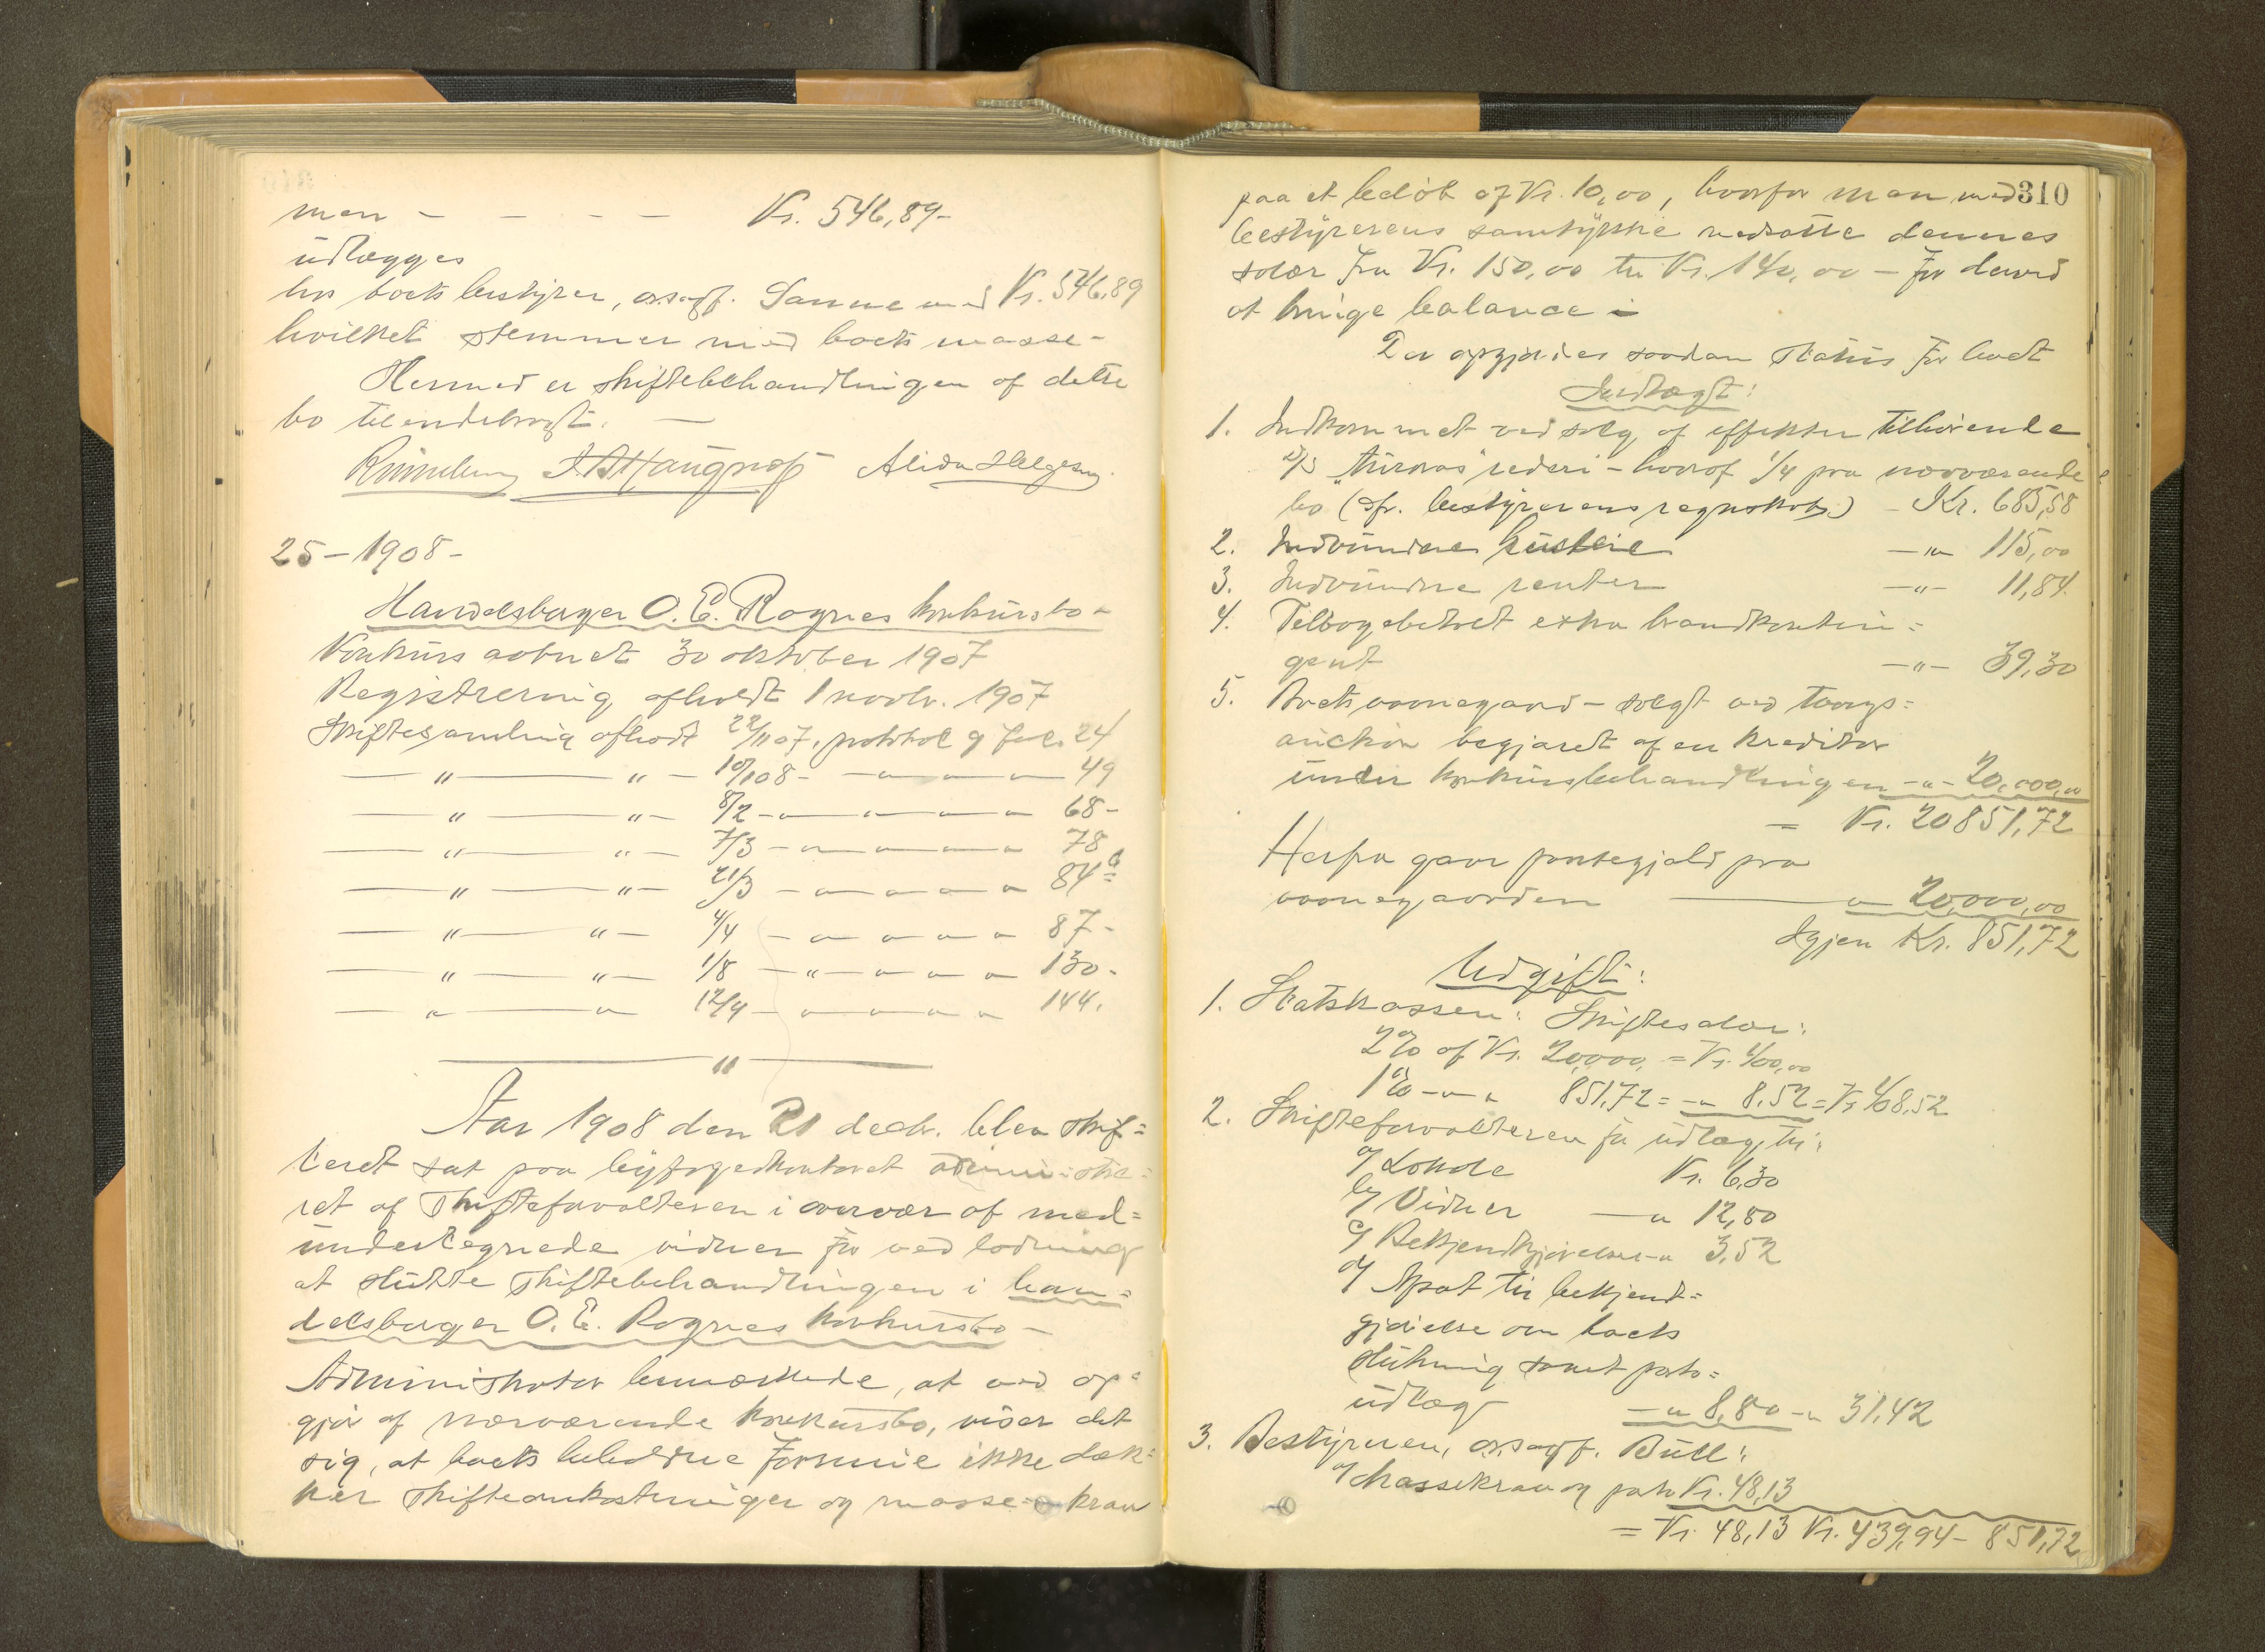 men - - - - Kr. 546,89-
udlægges
hos boets bestyrer, o.r.sagf. Sanne med Kr. 546,89
hvilket stemmer med boets masse-
Hermed er skiftebehandlingen af dette
bo tilendebragt. -
Alida Helgesen.
25-1908-
Handelsborger O. E. Rognes konkursbo-
Konkurs aabnet 30 oktober 1907
Registrering afholdt 1 novbr. 1907
Skiftesamling afholdt 22/11 07, protokol 9 fol. 24
— " — " — 10/1 08 - — " — " — " — 49
— " — " — 8/2 - " — " — " — " 68-
— " — " — 7/3 - " — " — " — " 78
— " — " — 21/3 - " — " — " — " 84b
— " — " — 4/4 - " — " — " — " 87-
— " — " — 1/8 - " — " — " — " 130-
— " — " 12/9 - " — " — " — " 144.
— " —
Aar 1908 den 21 decbr. blev skif=
teret sat paa byfogedkontoret administre=
ret af skifteforvalteren i overvær af med=
undertegnede vidner for ved lodning
at slutte skiftebehandlingen i han=
delsborger O. E. Rognes konkursbo-
Administrator bemærkede, at ved op=
gjør af nærværende konkursbo, viser det
sig, at boets beholdne formue ikke dæk=
ker skifteomkostninger og masse= krav
310
paa et beløb af Kr. 10,00, hvorfor man med
bestyrerens samtykke nedsatte dennes
salær fra Kr. 150,00 til Kr. 140,00 - for derved
at bringe balance -
Der opgjordes saadan status for boet
Indtægt:
1. Indkommet ved salg af effekter tilhørende
rederi - hvoraf 1/4 paa nærværende
bo (cfr. bestyrerens regnskab) - Kr. 685,58
2. Indvundne husleie — " — 115,00
3. Indvundne renter — " — 11,84
4. Tilbagebetalt extra brandkontin=
gent — " — 39,30
5. Boets vaanegaard - solgt ved tvangs=
auktion begjæret af en kreditor
under konkursbehandlingen - " - 20,000,00
= Kr. 20851,72
Herfra gaar pantegjæld paa
vaanegaarden — " 20,000,00
Igjen Kr. 851,72
Udgift:
1. Statskassen: Skiftesalær:
2% af Kr. 20,000, = Kr. 400,00
1% - " - " 851,72 = - " 8,52 = Kr. 408,52
2. Skifteforvalteren for udlæg til:
a/ Lokale Kr. 6,30
b/ Vidner — " 12,80
c/ Bekjendtgjørelser - " 3,52
d/ Afsat til bekjendt=
gjørelse om boets
slutning samt porto=
udlæg — " 8,80 - " 31,42
3. Bestyreren, o.r.sagf. Bull:
a/ Massekrav og porto Kr. 48,13
= Kr. 48,13 Kr. 439,94 - 851,72